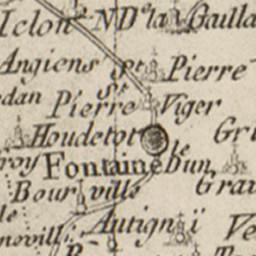 Iclon N D de la Gailla
Angiens St Pierre
dan St Pierre Viger
Houdetot Gr
roy Fontaine le Dun
Bourville Gra
le Autigni Ve
noville